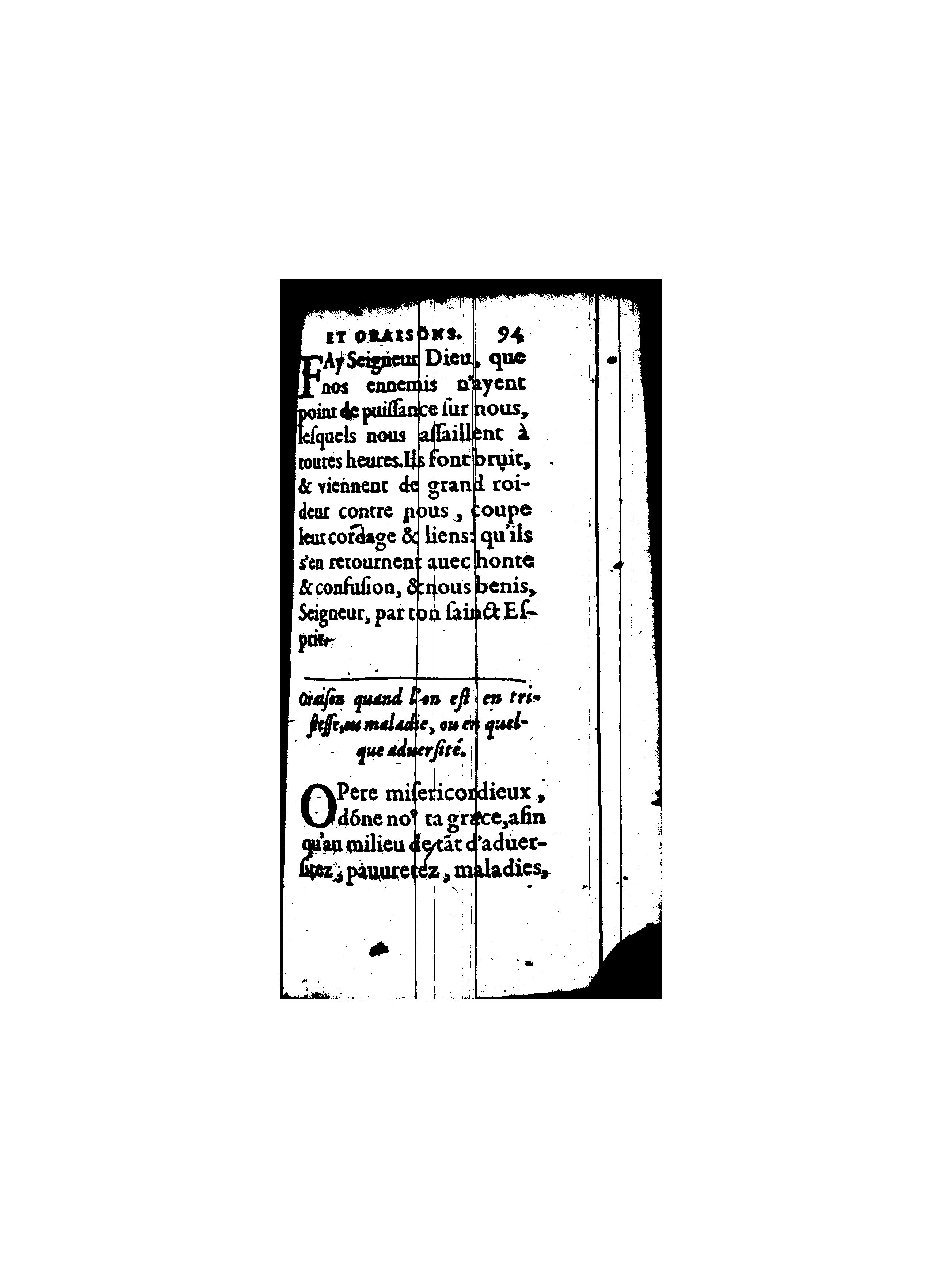 ET ORAISONS. 94
FAy Seigneur Dieu, que
nos ennemis n'ayent
point de puiſſance ſur nous,
leſquels nous aſſaillent à
toutes heures. Ils font bruit,
& viennent de grand roi-
deur contre nous, coupe
leur cordage & liens: qu'ils
s'en retournent auec honte
& confuſion, & nous benis,
Seigneur, par ton ſainct Eſ-
prit.
Oraiſon quand l'on eſt en tri-
ſteſſe, ou maladie, ou en quel-
que aduerſité.
O Pere miſericordieux,
dóne noꝰ ta grace, afin
qu'au milieu de tãt d'aduer-
ſitez, pauuretez, maladies,